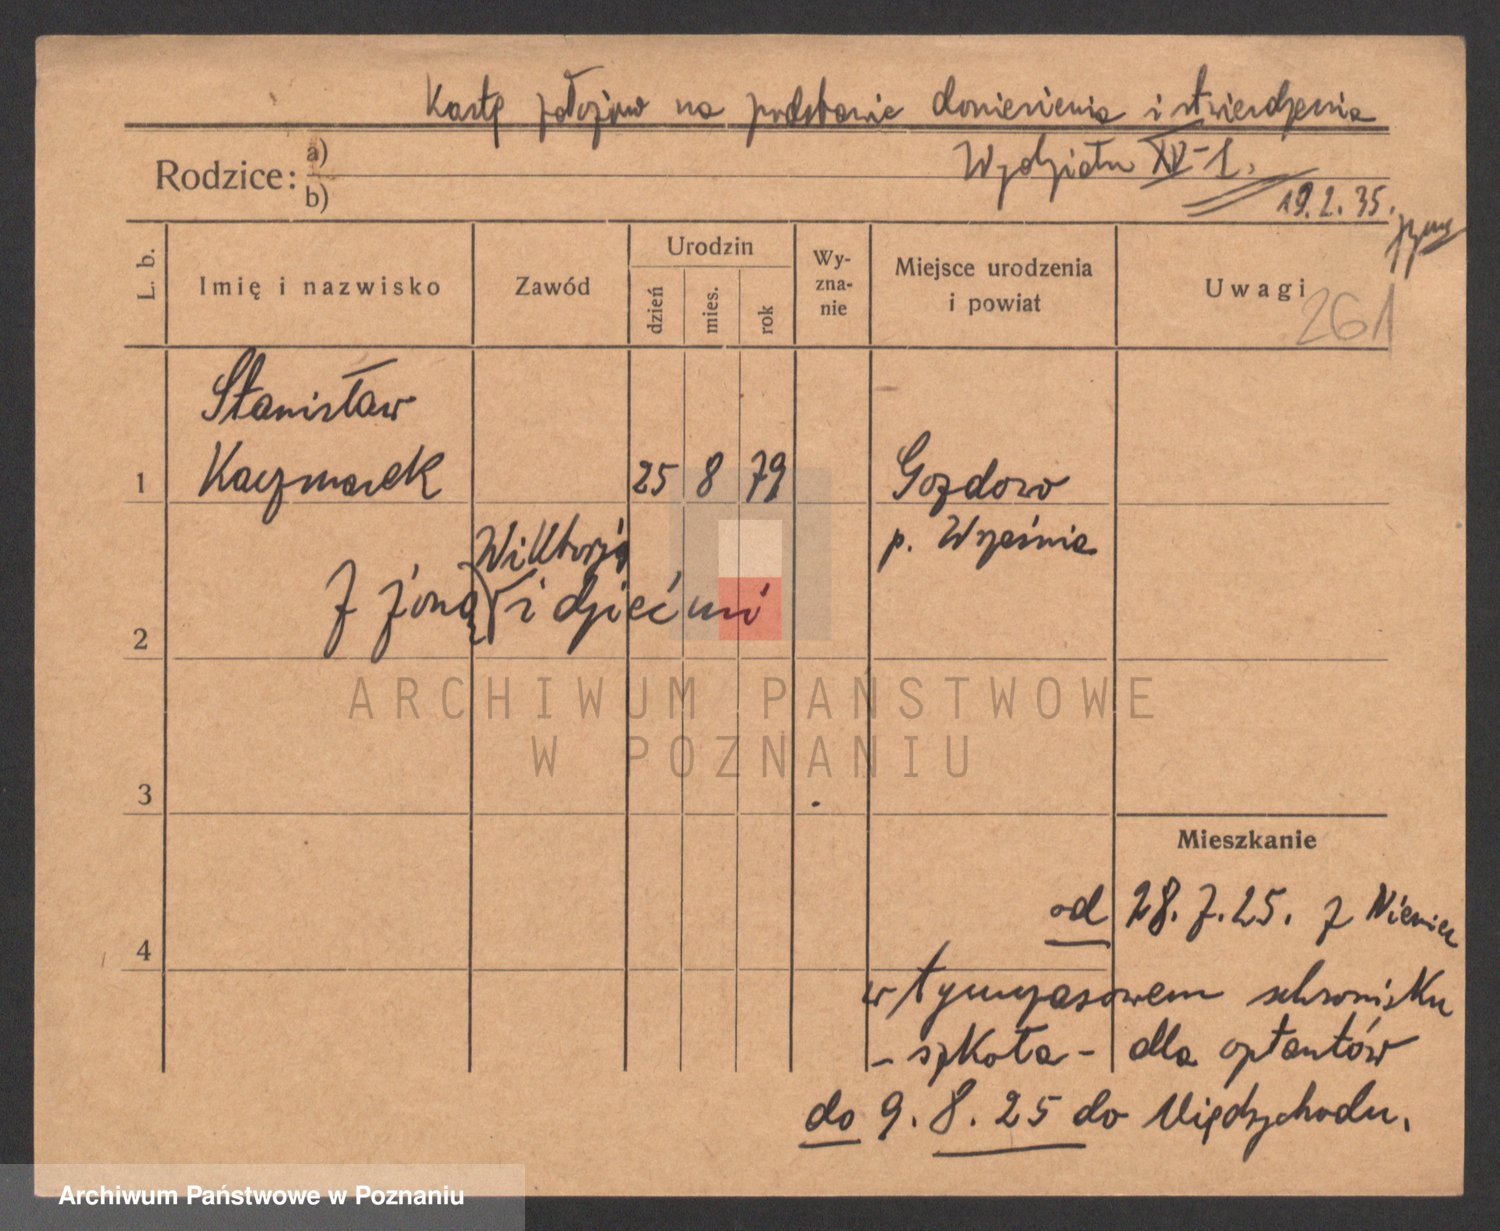 Kartę założono na podstawie doniesienia i stwierdzenia
Wydziału XV-1.
19.2.35.
Rodzice: a)
b)
L. b.
Imię i nazwisko
Zawód
Urodzin
dzień
mies.
rok
Wy-
zna-
nie
Miejsce urodzenia
i powiat
Uwagi
261
Stanisław
1 Kaczmarek 25 8 79 Gozdowo
p. Września
Wiktorją
2 z żoną i dziećmi
ARCHIWUM PAŃSTWOWE
W POZNANIU
3
Mieszkanie
od 28.7.25. z Niemiec
4
w tymczasowem schronisku
- szkoła - dla optantów
do 9.8.25 do Międzychodu.
Archiwum Państwowe w Poznaniu